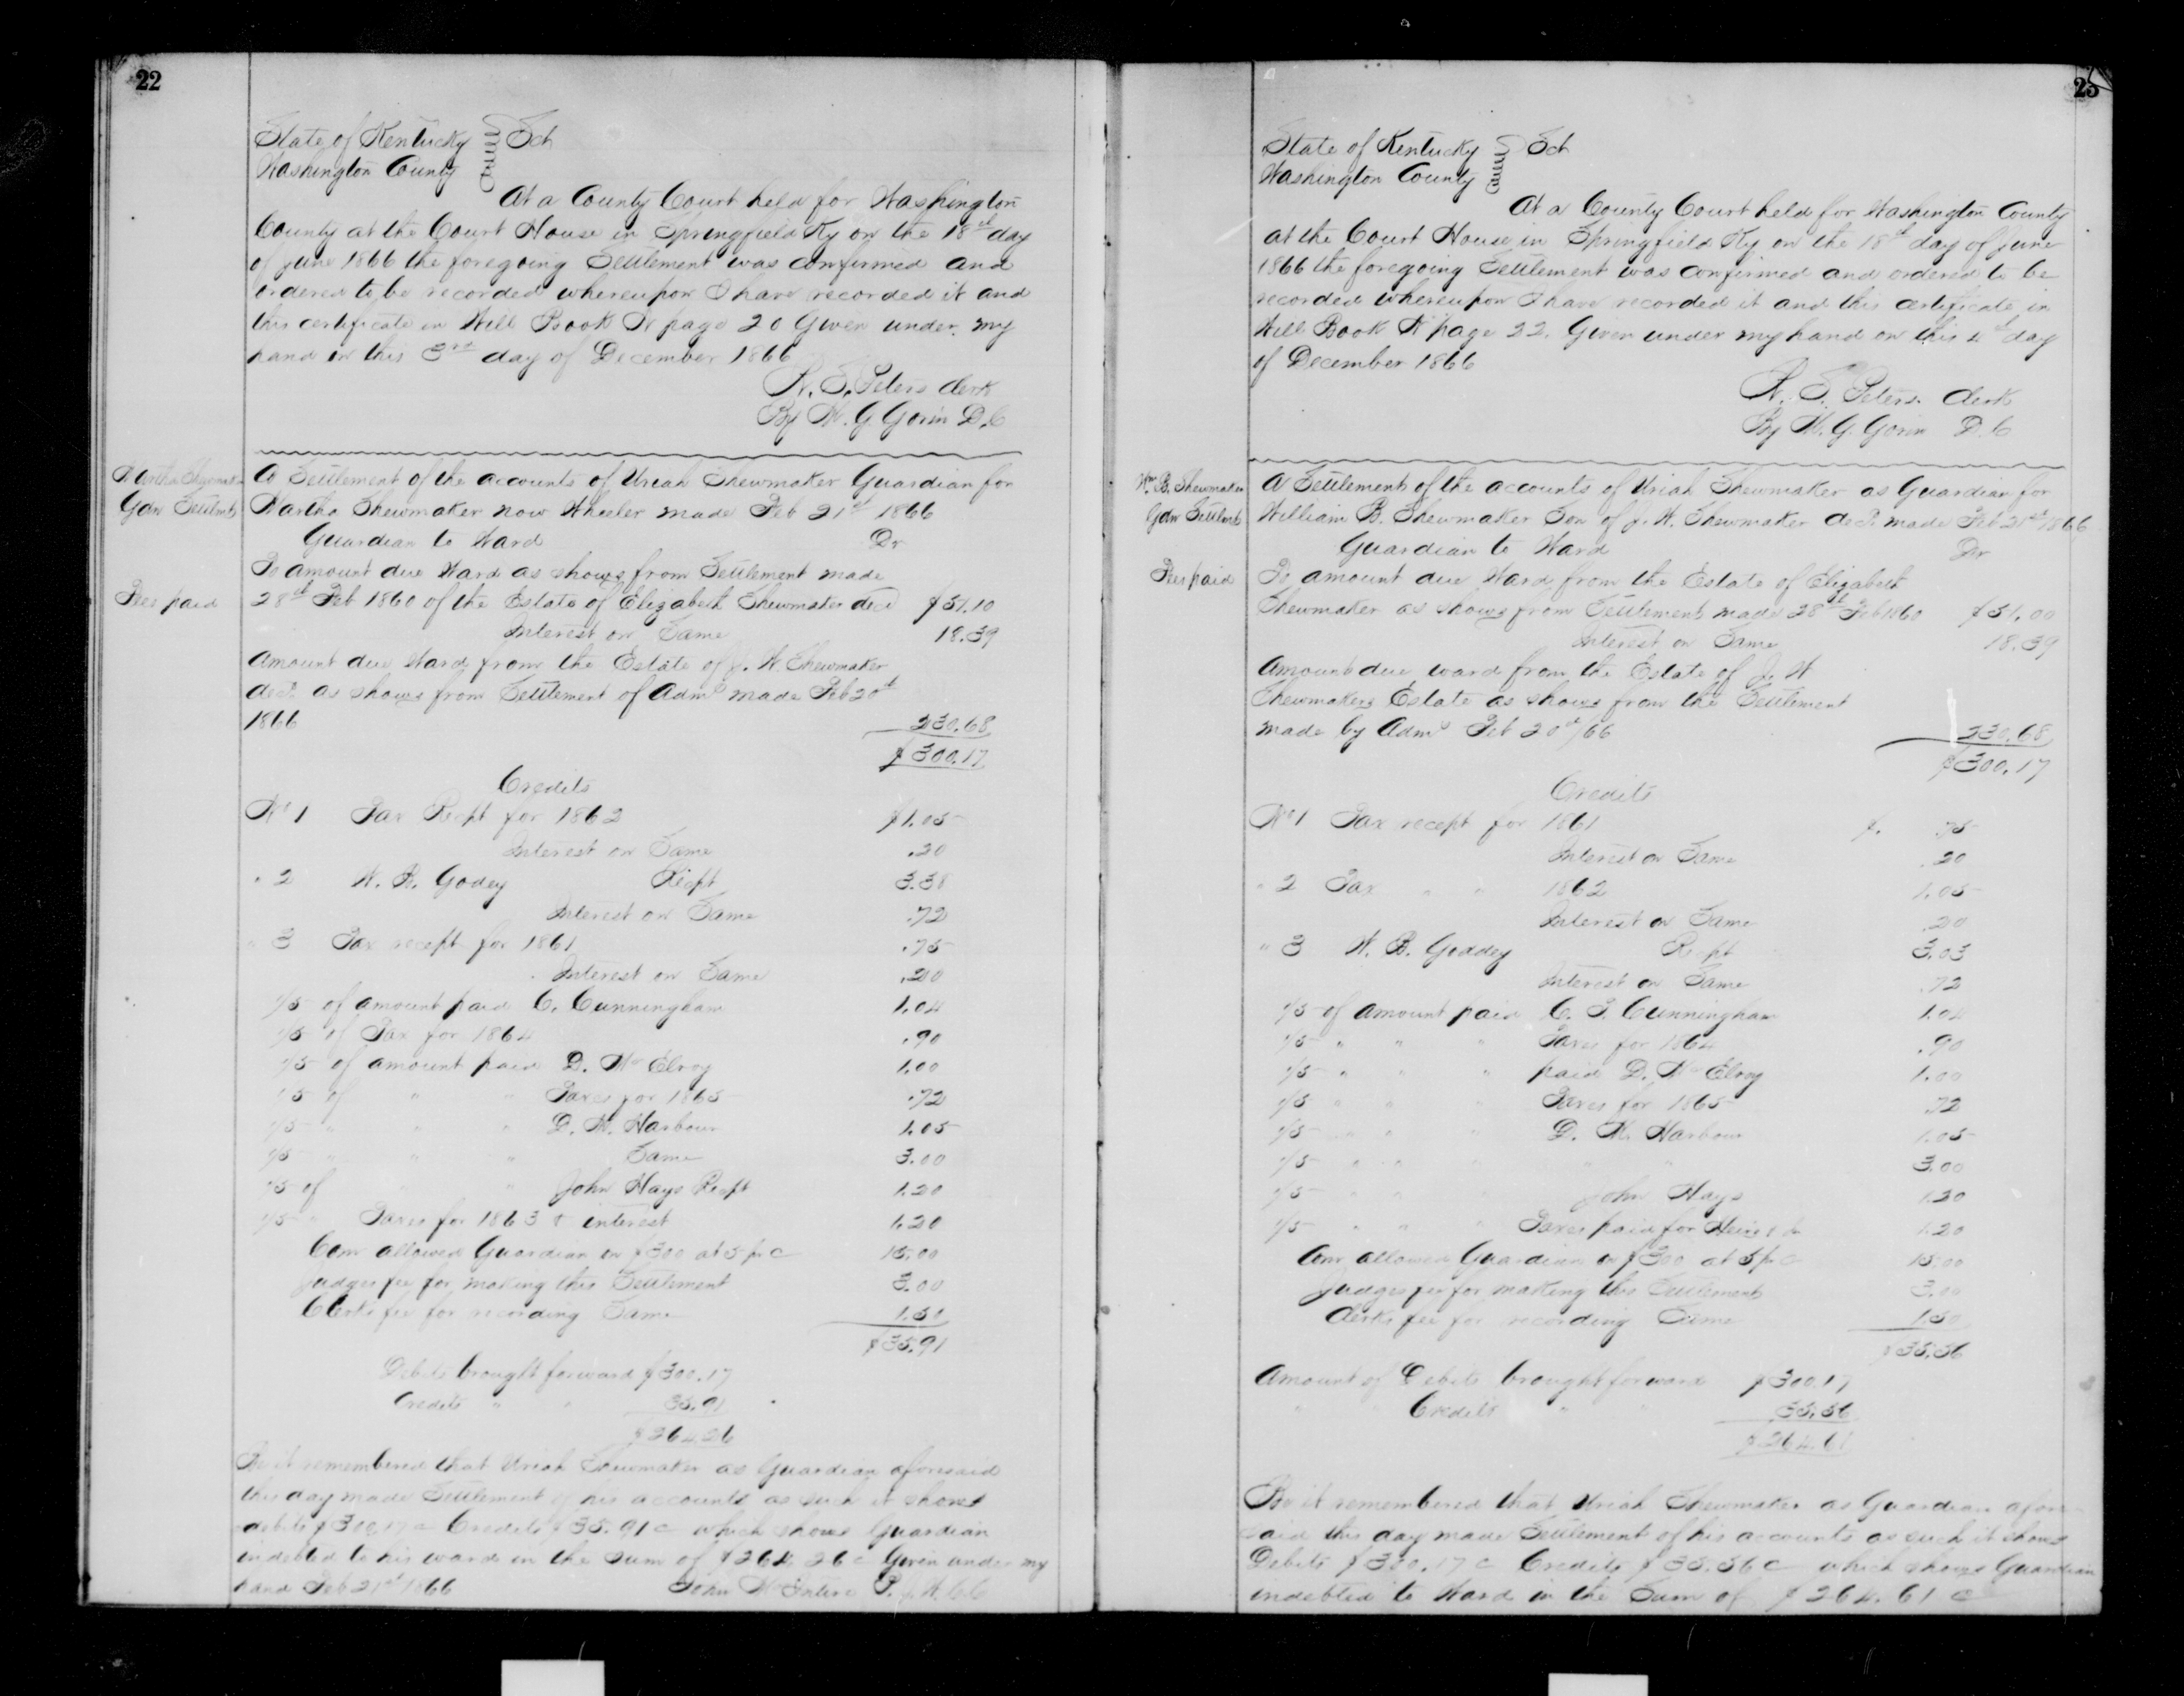 22
State of Kentucky } Sct
Washington County }
At a County Court held for Washington
County at the Court House in Springfield Ky on the 18th day
of June 1866 the foregoing Settlement was confirmed and
ordered to be recorded whereupon I have recorded it and
this certificate in Will Book page 20 Given under my
hand on this 3rd day of December 1866
S. Peters Clerk
By W. G. Gorin D.C
Martha Shewmaker
Gdn Settlmt
A Settlement of the accounts of Uriah Shewmaker Guardian for
Martha Shewmaker now Wheeler made Feb 21st 1866
Guardian to Ward Dr
To amount due Ward as shows from Settlement made
Fees paid
28th Feb 1860 of the Estate of Elizabeth Shewmaker decd $51.10
Interest on Same 18.39
Amount due Ward from the Estate of J. W. Shewmaker
decd. as shows from Settlement of Admr made Feb 20th
1866 230.68
$300.17
Credits
No 1 Tax Recpt for 1862 $1.05
Interest on Same .20
" 2 W. R. Godey Recpt 3.38
Interest on Same .72
" 3 Tax recept for 1861 .75
Interest on Same .20
1/5 of amount paid C. Cunningham 1.04
1/5 of Tax for 1864 .90
1/5 of amount paid D. McElroy 1.00
1/5 of " " Taxes for 1865 .72
1/5 " " " D. N. Harbour 1.05
1/5 " " " Same 3.00
1/5 of " " John Hays Recpt 1.20
1/5 " Taxes for 1863 & interest 1.20
Com allowed Guardian on $300 at 5 pr c 15.00
Judges fee for making this Settlement 3.00
Clerks fee for recording Same 1.50
$35.91
Debits brought forward $300.17
Credits " " 35.91
$264.26
Be it remembered that Uriah Shewmaker as Guardian aforesaid
this day made Settlement of his accounts as such it shows
debits $300.17 c Credits $35.91 c which shows Guardian
indebted to his ward in the Sum of $264.26 c Given under my
hand Feb 21st 1866 John McIntire P. J. W. C C
23
State of Kentucky } Sct
Washington County }
At a County Court held for Washington County
at the Court House in Springfield Ky on the 18th day of June
1866 the foregoing Settlement was confirmed and ordered to be
recorded whereupon I have recorded it and this certificate in
Will Book page 22. Given under my hand on this 4th day
of December 1866
S. Peters. Clerk
By W. G. Gorin D.C
Wm B. Shewmaker
Gdn Settlmt
A Settlement of the accounts of Uriah Shewmaker as Guardian for
William B. Shewmaker Son of J. W. Shewmaker decd. made Feb 21st 1866
Guardian to Ward Dr
Fees paid
To amount due Ward from the Estate of Elizabeth
Shewmaker as shows from Settlement made 28th Feb 1860 $51.00
Interest on Same 18.39
Amount due ward from the Estate of J. W
Shewmakers Estate as shows from the Settlement
made by Admr Feb 20th/66 230.68
$300.17
Credits
No 1 Tax recept for 1861 $ .75
Interest on Same .20
" 2 Tax " " 1862 1.05
Interest on Same .20
" 3 W. B. Goddey Recpt 3.03
Interest on Same .72
1/5 of amount paid C. T. Cunningham 1.04
1/5 " " " Taxes for 1864 .90
1/5 " " " paid D. McElroy 1.00
1/5 " " " Taxes for 1865 .72
1/5 " " " D. N. Harbour 1.05
1/5 " " " " " 3.00
1/5 " " " John Hays 1.20
1/5 " " " Taxes paid for Heirs 1.20
Am allowed Guardian on $300 at 5 pr c 15.00
Judges fee for making this Settlement 3.00
Clerks fee for recording Same 1.50
$35.56
Amount of Debits brought forward $300.17
" Credits " " 35.56
$264.61
Be it remembered that Uriah Shewmaker as Guardian afore-
said this day made Settlement of his accounts as such it shows
Debits $300.17 c Credits $35.56 c which shows Guardian
indebted to Ward in the Sum of $264.61 c